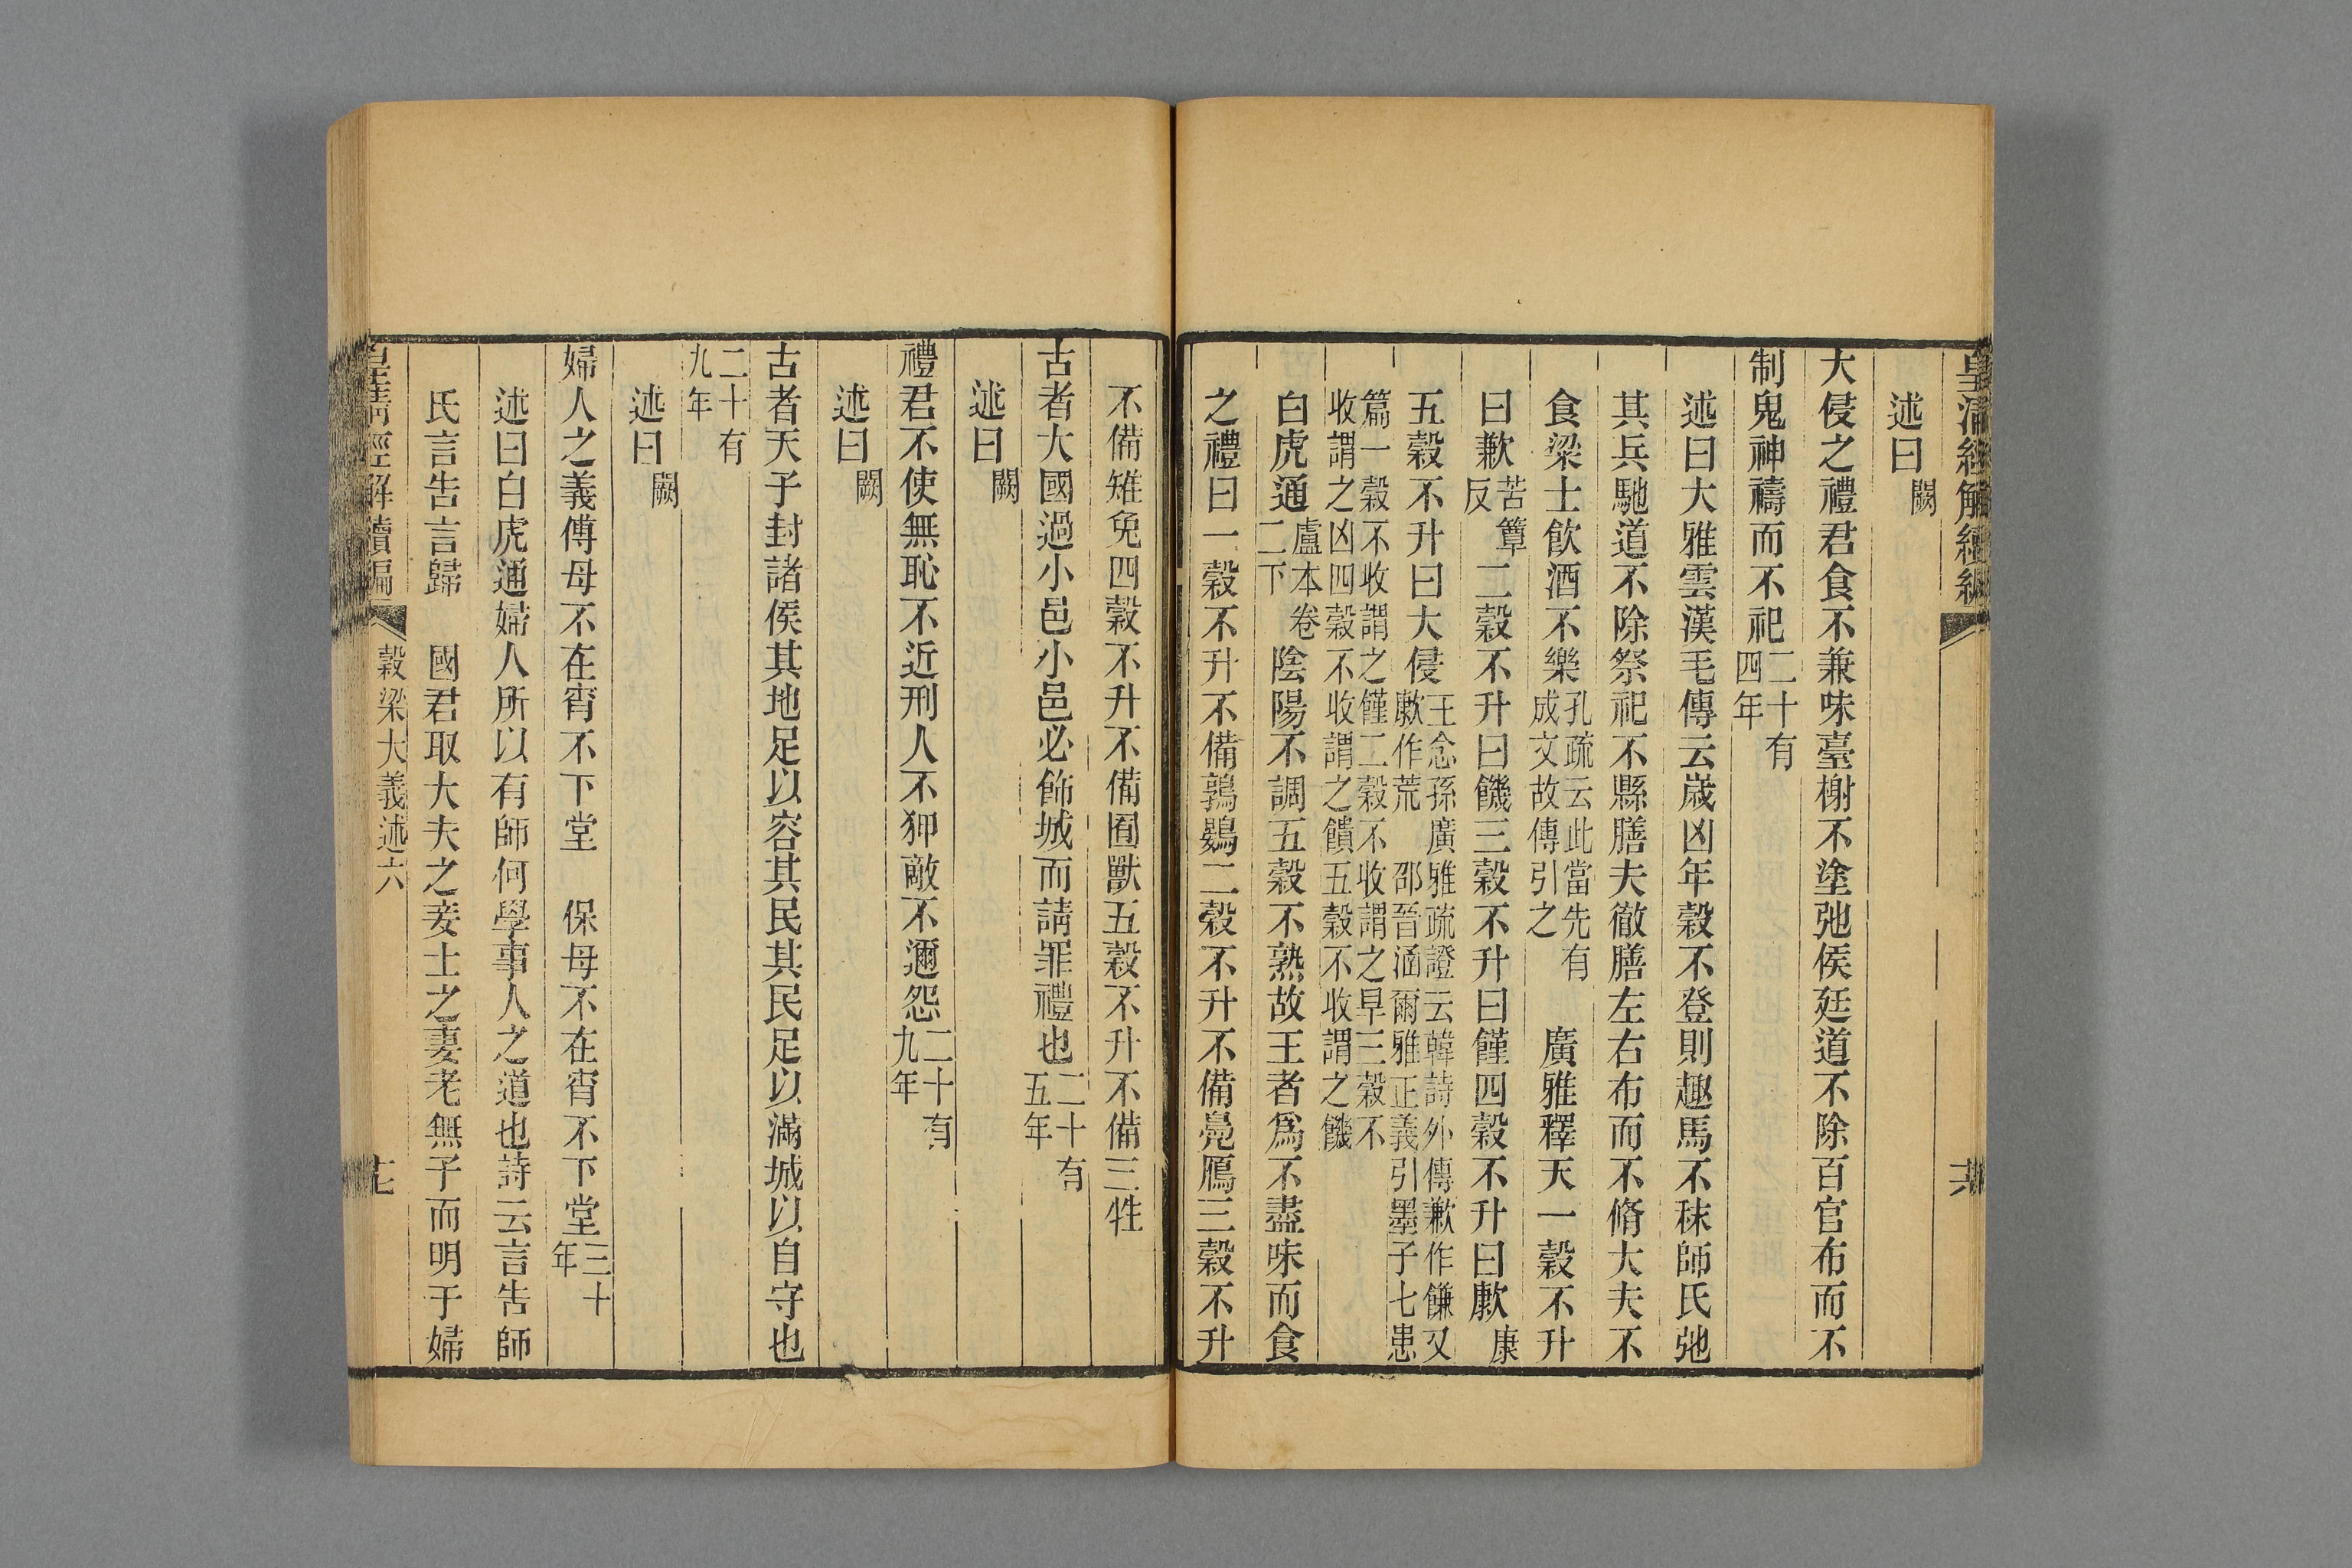 皇清經解續編
六
述曰闕
大侵之禮君食不兼味臺榭不塗弛侯廷道不除百官布而不
制鬼神禱而不祀二十有四年
述曰大雅雲漢毛傳云歲凶年穀不登則趣馬不秣師氏弛
其兵馳道不除祭祀不縣膳夫徹膳左右布而不脩大夫不
食梁士飲酒不樂孔疏云此當先有成文故傳引之　廣雅釋天一穀不升
曰歉苦簟反二穀不升曰饑三穀不升曰饉四穀不升曰歉康
五穀不升曰大侵王念孫廣雅疏證云韓詩外傳歉作鎌又歉作荒　邵晉涵爾雅正義引墨子七患
篇一穀不收謂之饉二穀不收謂之旱三穀不收謂之凶四穀不收謂之饋五穀不收謂之饑
白虎通盧本卷二下陰陽不調五穀不熟故王者爲不盡味而食
之禮曰一穀不升不備鶉鷃二穀不升不備鳧鴈三穀不升
不備雉兔四穀不升不備囿獸五穀不升不備三牲
古者大國過小邑小邑必飾城而請罪禮也二十有五年
述曰闕
禮君不使無恥不近刑人不狎敵不邇怨二十有九年
述曰闕
古者天子封諸侯其地足以容其民其民足以滿城以自守也
二十有九年
述曰闕
婦人之義傅母不在宵不下堂　保母不在宵不下堂三十年
述曰白虎通婦人所以有師何學事人之道也詩云言告師
氏言告言歸　國君取大夫之妾士之妻老無子而明于婦
皇淸經解續編
穀梁大義述六
七